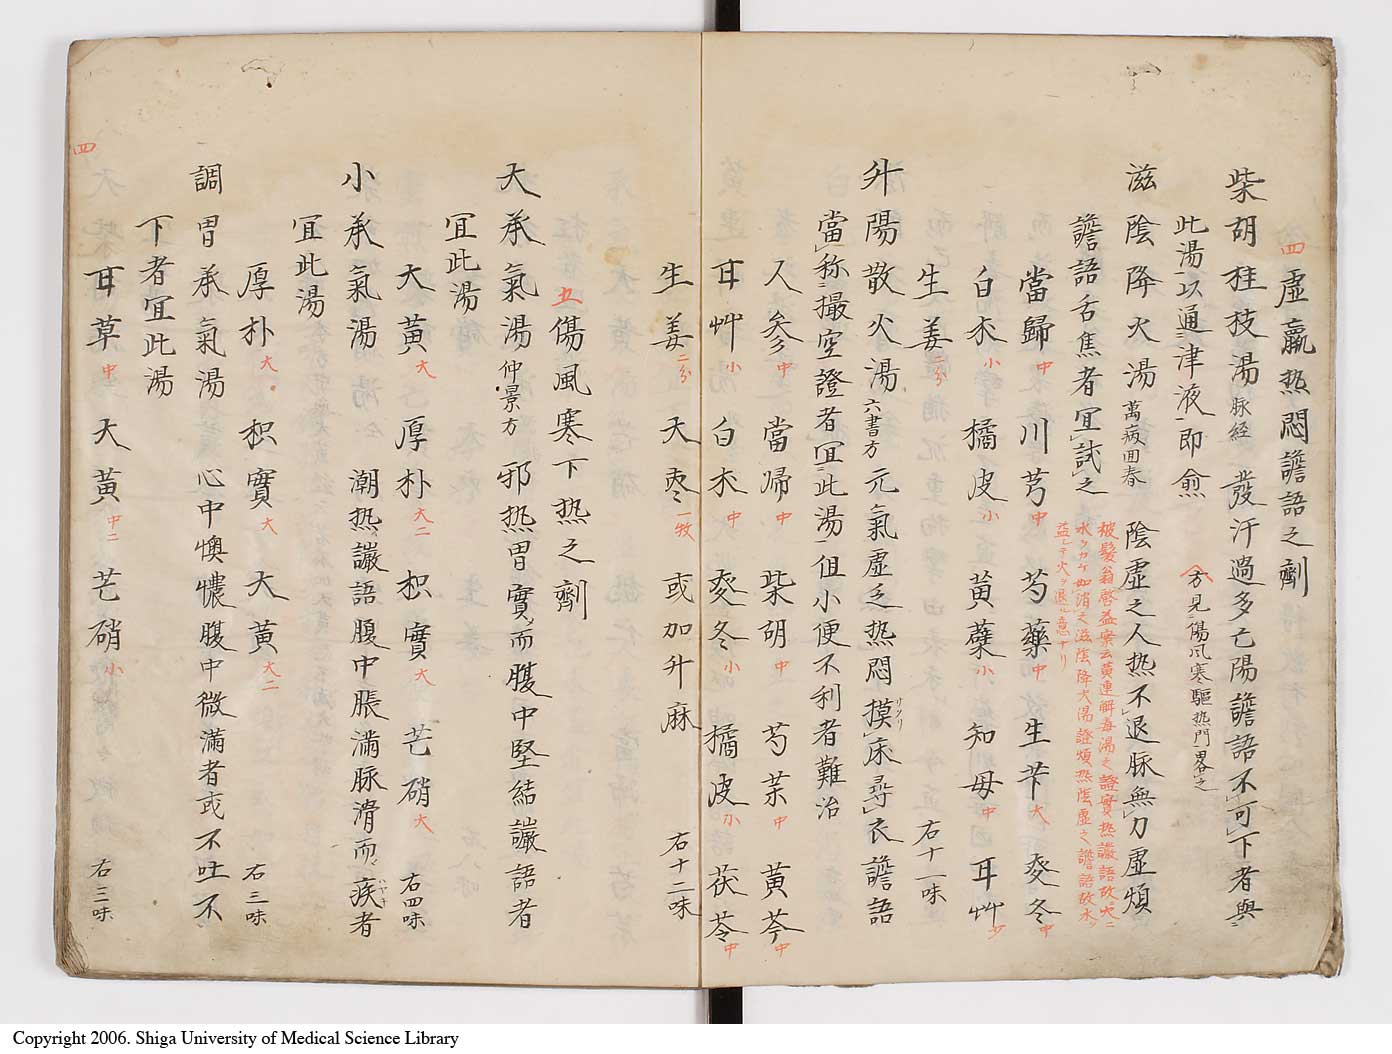 四 虚羸热悶譫語之劑
柴胡桂枝湯 脉経 發汗過多亡陽譫語不可下者與
此湯以通津液即愈 方見傷风寒驅热門畧之
滋陰降火湯 萬病回春 陰虚之人热不退脉無力虚煩
譫語舌焦者宜試之
被髮翁啓益案云黄連解毒湯之證實热讝語故火ニ
水ヲカケ如消之滋陰降火湯證煩热陰虚之譫語故水ヲ
益シテ火ヲ退ル意ナリ
當歸中 川芎中 芍藥中 生芐大 麥冬中
白朮小 橘皮小 黄蘗小 知母中 甘艸少
生姜二分 右十一味
升陽散火湯 六書方 元氣虚乏热悶摸床尋衣譫語
當称撮空證者宜此湯但小便不利者難治
人参中 當帰中 柴胡中 芍薬中 黄芩中
甘艸小 白朮中 麥冬小 橘皮小 茯苓中
生姜二分 大棗一枚 或加升麻 右十二味
五 傷風寒下热之劑
大承氣湯 仲景方 邪热胃實而腹中堅結讝語者
宜此湯
大黄大 厚朴大二 枳實大 芒硝大 右四味
小承氣湯 潮热讝語腹中脹滿脉滑而疾者
宜此湯
厚朴大 枳實大 大黄大二 右三味
調胃承氣湯 心中懊憹腹中微滿者或不吐不
下者宜此湯
甘草中 大黄中二 芒硝小 右三味
四
Copyright 2006. Shiga University of Medical Science Library